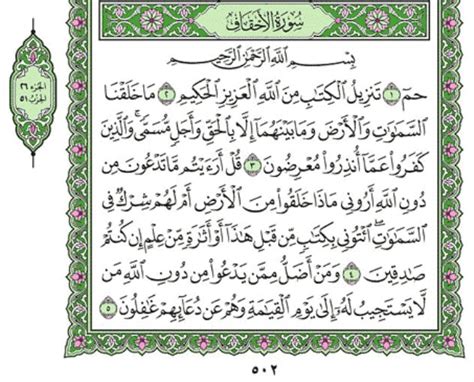 سُورَةُ الأَحْقَافِ
الجزء ٢٦
الحزب ٥١
بِسْمِ اللَّهِ الرَّحْمَٰنِ الرَّحِيمِ
حمٓ ١ تَنزِيلُ ٱلْكِتَٰبِ مِنَ ٱللَّهِ ٱلْعَزِيزِ ٱلْحَكِيمِ ٢ مَا خَلَقْنَا
ٱلسَّمَٰوَٰتِ وَٱلْأَرْضَ وَمَا بَيْنَهُمَآ إِلَّا بِٱلْحَقِّ وَأَجَلٍ مُّسَمًّى ۚ وَٱلَّذِينَ
كَفَرُوا۟ عَمَّآ أُنذِرُوا۟ مُعْرِضُونَ ٣ قُلْ أَرَءَيْتُم مَّا تَدْعُونَ مِن
دُونِ ٱللَّهِ أَرُونِى مَاذَا خَلَقُوا۟ مِنَ ٱلْأَرْضِ أَمْ لَهُمْ شِرْكٌ فِى
ٱلسَّمَٰوَٰتِ ۖ ٱئْتُونِى بِكِتَٰبٍ مِّن قَبْلِ هَٰذَآ أَوْ أَثَٰرَةٍ مِّنْ عِلْمٍ إِن كُنتُمْ
صَٰدِقِينَ ٤ وَمَنْ أَضَلُّ مِمَّن يَدْعُوا۟ مِن دُونِ ٱللَّهِ مَن
لَّا يَسْتَجِيبُ لَهُۥٓ إِلَىٰ يَوْمِ ٱلْقِيَٰمَةِ وَهُمْ عَن دُعَآئِهِمْ غَٰفِلُونَ ٥
٥٠٢